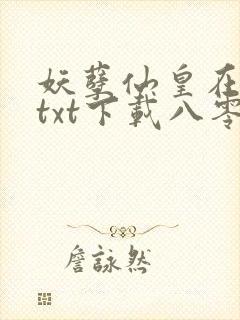 妖孽仙皇在
txt下载八零
詹詠然